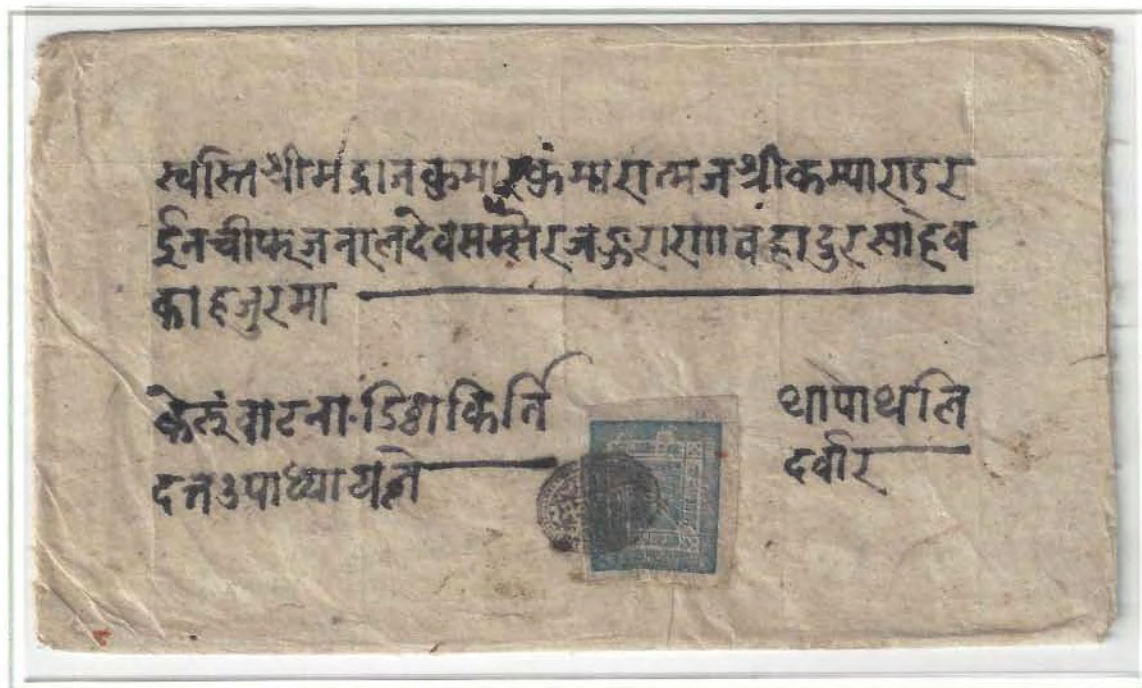 स्वस्ति श्रीमद्राजकुमारकुमारात्मज श्रीकम्यारांडर
ईनचीफ जनरल देव समसेर जङ्ग राणा वहादुर साहेव
का हजुरमा
वाटना. डिठ्ठा किर्ति
दत्त उपाध्यायले
थापाथलि
दर्वार